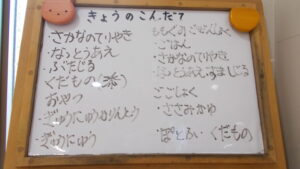 きょうのこんだて
・さかなのてりやき
・なっとうあえ
・ぶたじる
くだもの
おやつ
・ぎゅうにゅうかりんとう
・ぎゅうにゅう
・ごはん
・さかなのてりやき
・なっとうあえ・すましじる
ごごしょく
・ささみかゆ
くだもの